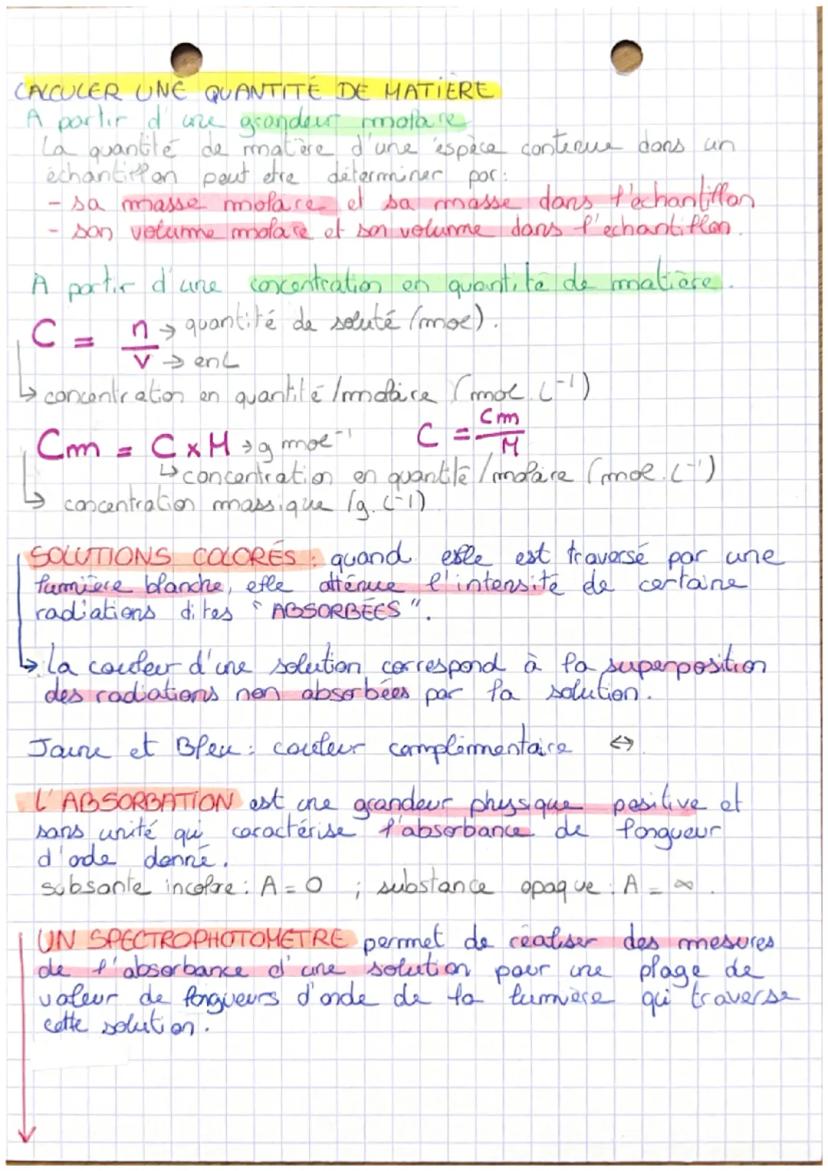 CALCULER UNE QUANTITÉ DE MATIÈRE
A partir d'une grandeur molaire
La quantité de matière d'une espèce contenue dans un
échantillon peut etre déterminer par:
- sa masse molaire et sa masse dans l'échantillon
- son volume molaire et son volume dans l'echantillon.
A partir d'une concentration en quantité de matière.
C = n/V → quantité de soluté (mol).
→ en L
↳ concentration en quantité/molaire (mol.L⁻¹)
Cm = C x M → g mol⁻¹ C = Cm/M
↳ concentration en quantité/molaire (mol.L⁻¹)
↳ concentration massique (g.L⁻¹)
SOLUTIONS COLORÉS : quand elle est traversé par une
lumière blanche, elle atténue l'intensité de certaine
radiations dites "ABSORBÉES".
↳ la couleur d'une solution correspond à la superposition
des radiations non absorbées par la solution.
Jaune et Bleu : couleur complémentaire ↔
L'ABSORBATION est une grandeur physique positive et
sans unité qui caractérise l'absorbance de longueur
d'onde donné.
subsante incolore : A = 0 ; substance opaque : A = ∞.
UN SPECTROPHOTOMETRE permet de réaliser des mesures
de l'absorbance d'une solution pour une plage de
valeur de longueurs d'onde de la lumière qui traverse
cette solution.